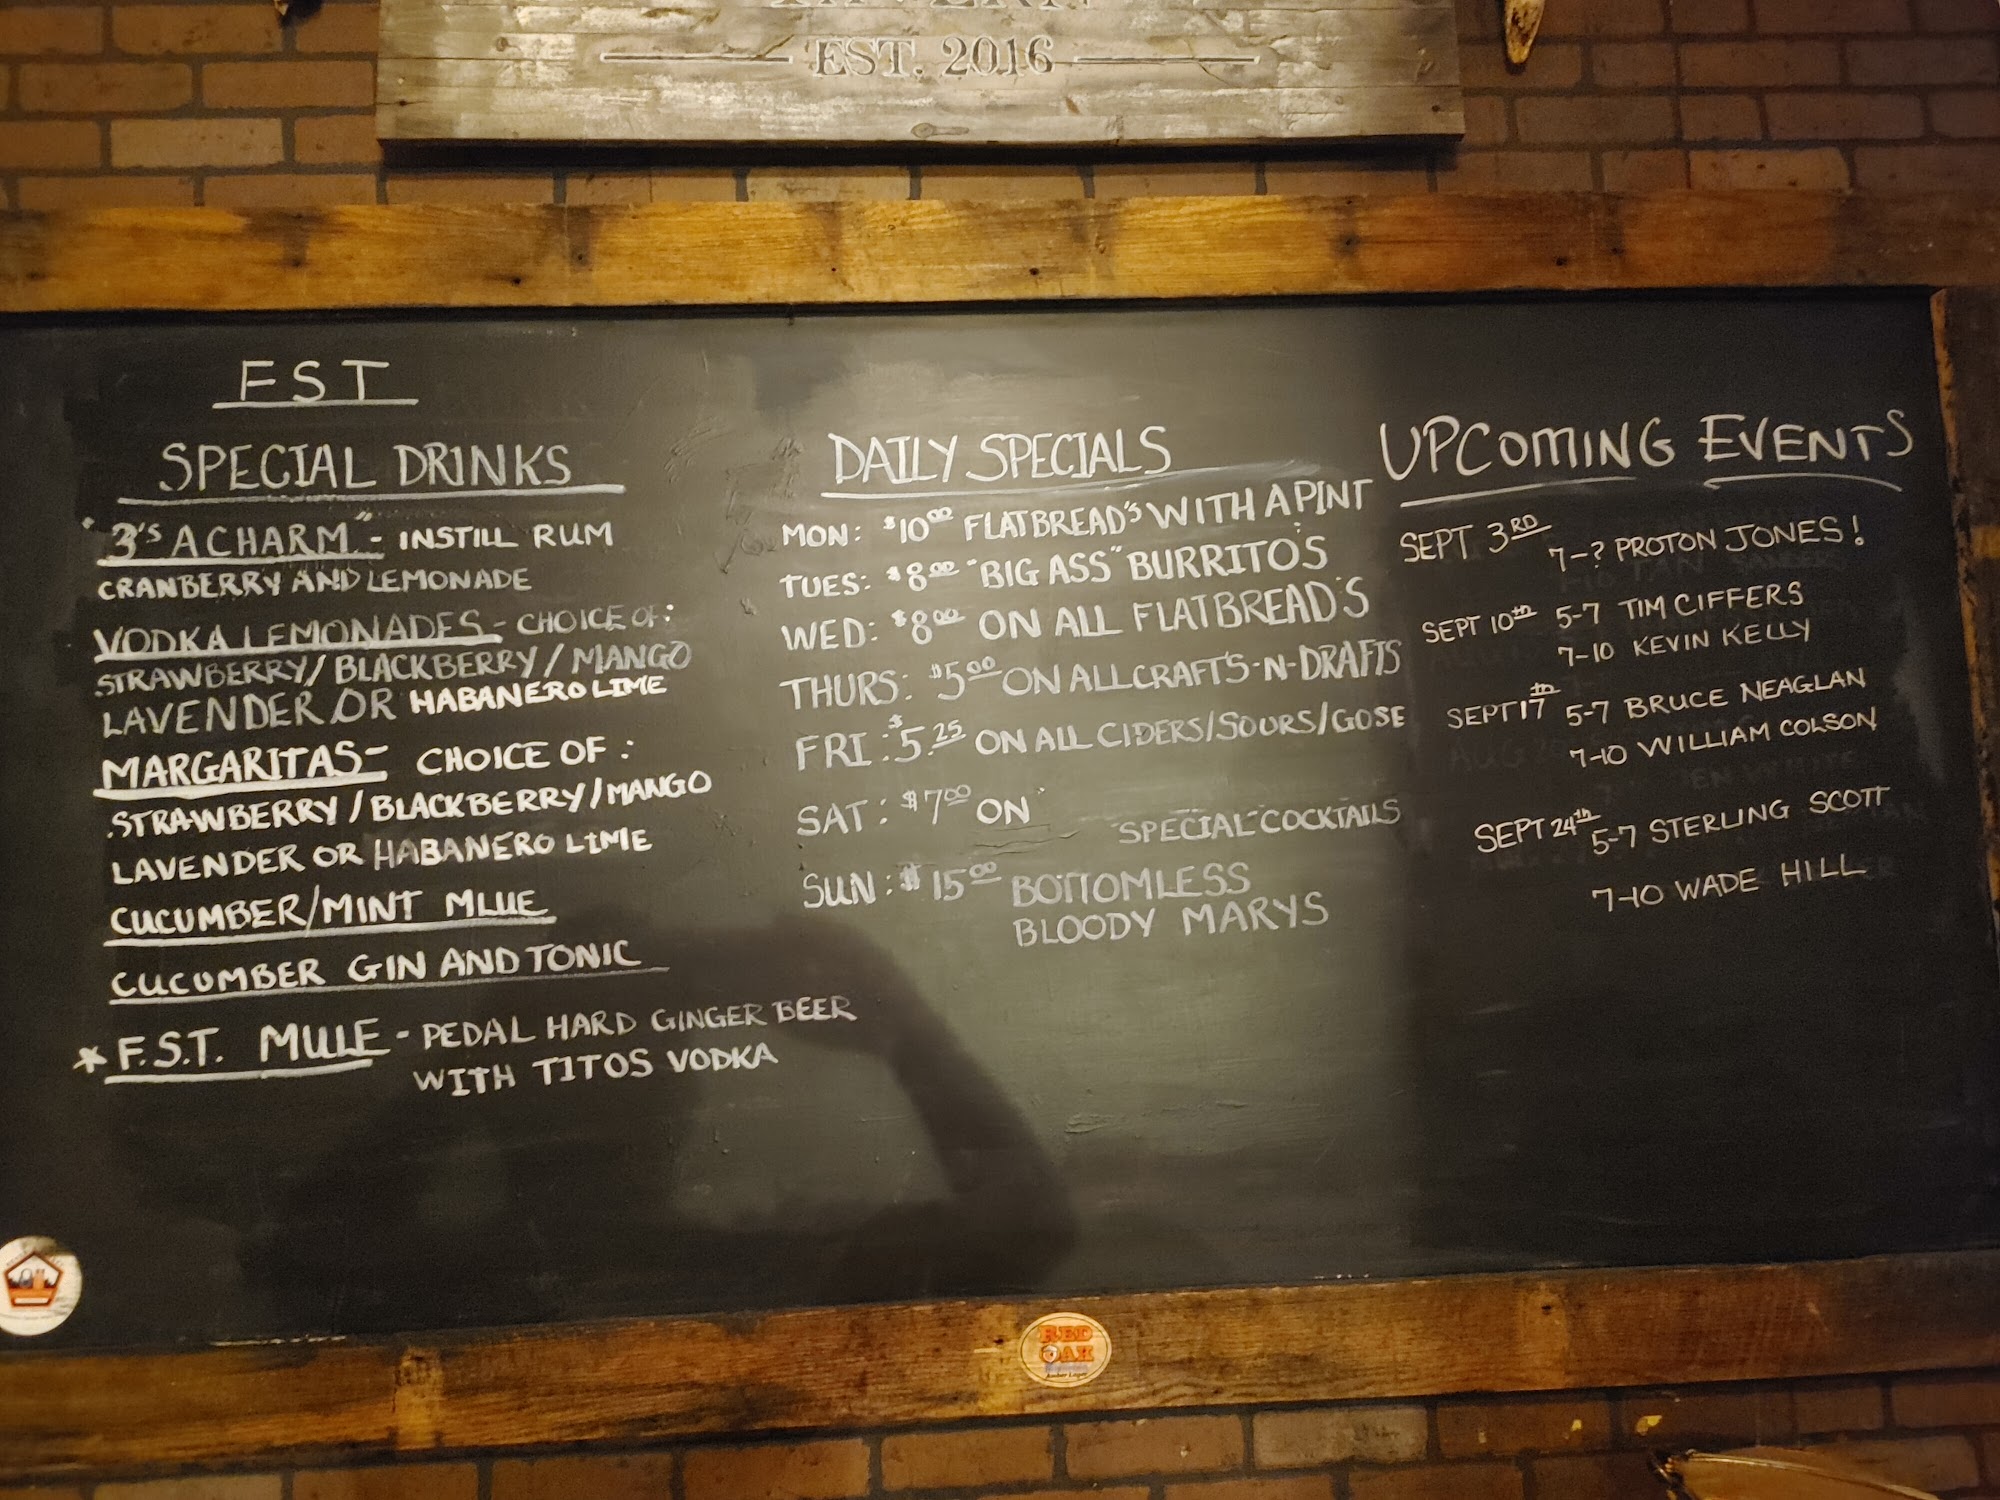 EST. 2016
FST
SPECIAL DRINKS
"3'S A CHARM" - INSTILL RUM
CRANBERRY AND LEMONADE
VODKA LEMONADES - CHOICE OF:
STRAWBERRY/BLACKBERRY/MANGO
LAVENDER OR HABANERO LIME
MARGARITAS - CHOICE OF:
STRAWBERRY/BLACKBERRY/MANGO
LAVENDER OR HABANERO LIME
CUCUMBER/MINT MLUE
CUCUMBER GIN AND TONIC
* F.S.T. MULE - PEDAL HARD GINGER BEER
WITH TITOS VODKA
DAILY SPECIALS
MON: $10.00 FLATBREAD'S WITH A PINT
TUES: $8.00 "BIG ASS" BURRITO'S
WED: $8.00 ON ALL FLATBREAD'S
THURS: $5.00 ON ALL CRAFT'S-N-DRAFTS
FRI: $5.25 ON ALL CIDERS/SOURS/GOSE
SAT: $7.00 ON SPECIAL COCKTAILS
SUN: $15.00 BOTTOMLESS
BLOODY MARYS
UPCOMING EVENTS
SEPT 3RD 7-? PROTON JONES!
SEPT 10th 5-7 TIM CIFFERS
7-10 KEVIN KELLY
SEPT 17th 5-7 BRUCE NEAGLAN
7-10 WILLIAM COLSON
SEPT 24th 5-7 STERLING SCOTT
7-10 WADE HILL
RED
OAK
Amber Lager